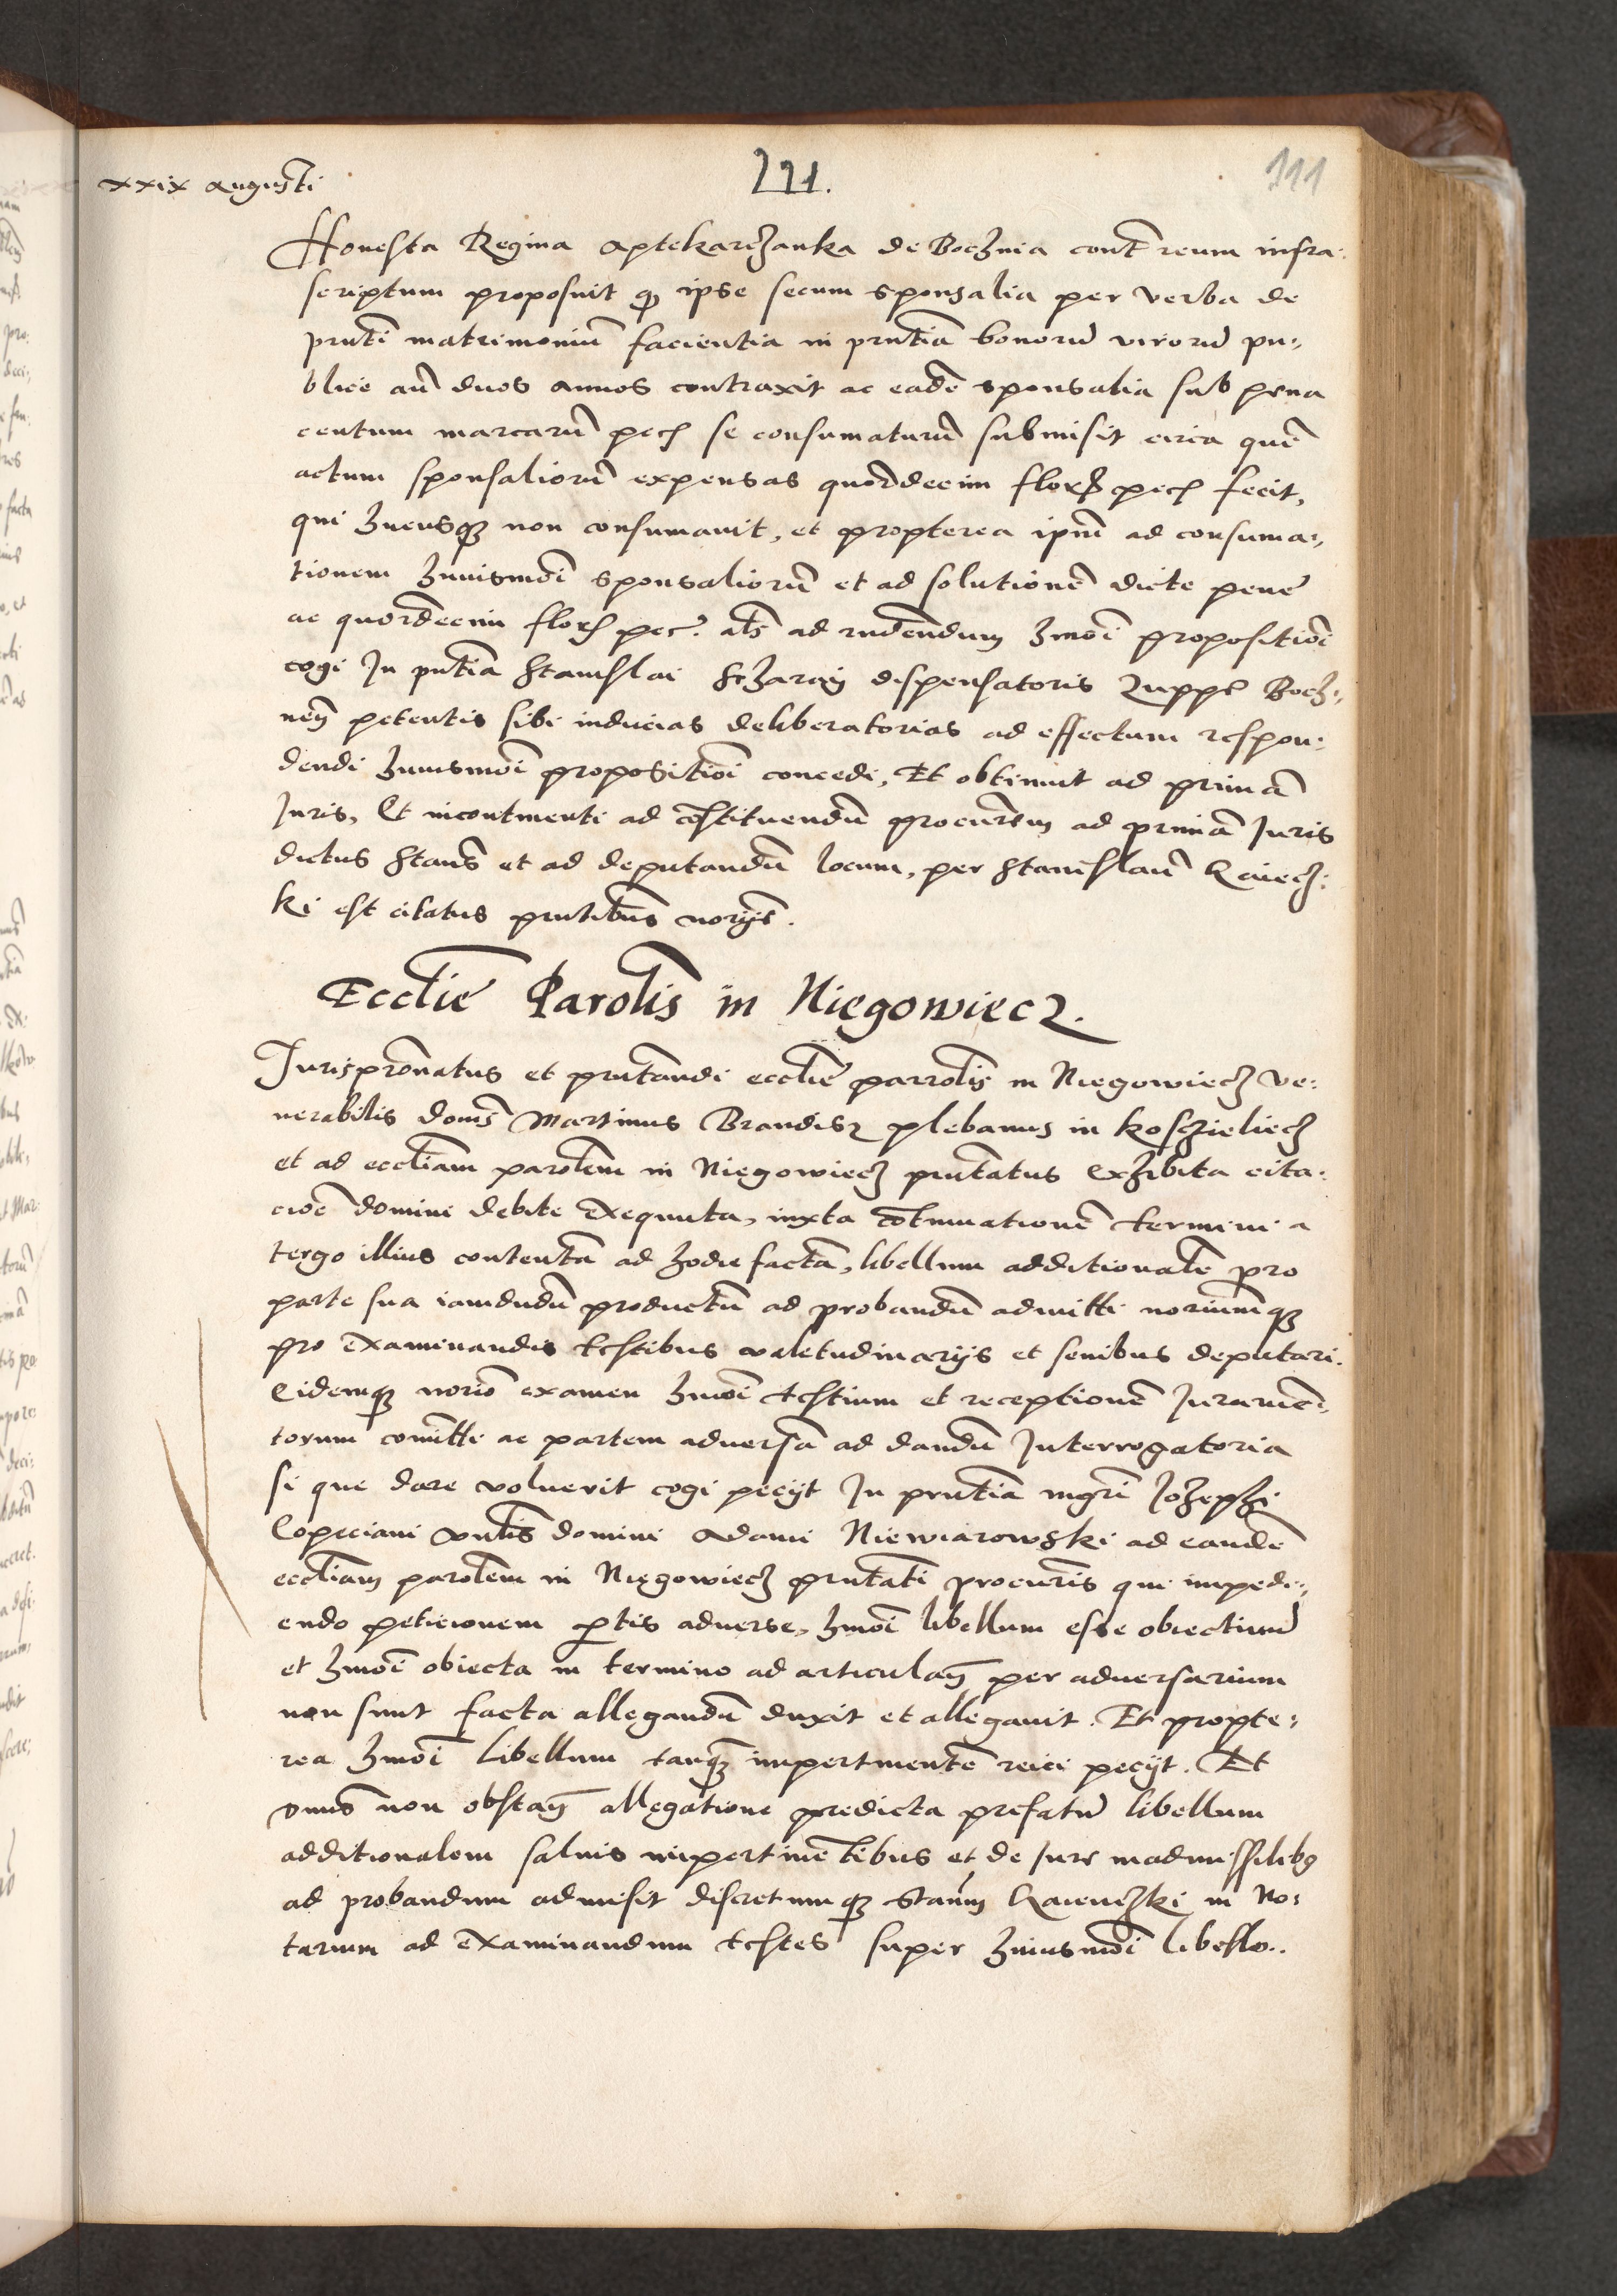 xxix augusti
111.
111
Honesta Regina Aptekarzanka de Bochnia cont reum infra-
scriptum proposuit q ipse secum sponsalia per verba de
pnti matrimoniu facientia in pntia bonoru viroru pu-
blice an duos annos contraxit ac eade sponsalia sub pena
centum marcaru pec se consumaturu submisit circa que
actum sponsalioru expensas quordecim flor pec fecit,
qui hucusq non consumavit, et propterea ipm ad consuma-
tionem huiusmoi sponsalioru et ad solutione dicte pene
ac quordecim flor pec. als ad rndendum hmoi propositioi
cogi In pntia Stanislai dispensatoris Zuppe Boch-
nen petentis sibi inducias deliberatorias ad effectum respon-
dendi huiusmoi propositioi concedi, Et obtinuit ad prima
Juris, Et incontinenti ad costituendu procurem ad prima Juris
dictus Stans et ad deputandu locum, per Stanislau
ki est citatus pntibus norijs.
Ecclie Parolis in Niegowiecz.
Jurispronatus et pntandi ecclie parrolis in Niegowiecz ve-
nerabilis doms Martinus Brandisz plebanus in Koschieliecz
et ad eccliam parolem in Niegowiecz pntatus exhibita cita-
cioe domini debite exequuta, iuxta cotinuatione termini a
tergo illius contenta ad hodie facta, libellum additionale pro
parte sua iamdudu productu ad probandu admitti noriumq
pro examinandis testibus valetudinarijs et senibus deputari.
Eidemq norio examen hmoi testium et receptione Jurame-
torum comitti ac partem adversa ad dandu Interrogatoria
si que dare voluerit cogi pecijt In pntia mgri
domini Adami Niewiarowski ad eande
eccliam parolem in Niegowiecz pntati procuris qui impedi-
endo peticionem ptis adverse, hmoi libellum esse obiectiuu
et hmoi obiecta in termino ad articulan per adversarium
non sunt facta allegandu duxit et allegauit. Et propte-
rea hmoi libellum tanq impertinente reici pecijt. Et
dnus non obstan allegatione predicta prefatu libellum
additionalem salvis impertinetibus et de Jure inadmissilibus
ad probandum admisit discretumq Stanm in No-
tarium ad examinandum testes super huiusmoi libello..